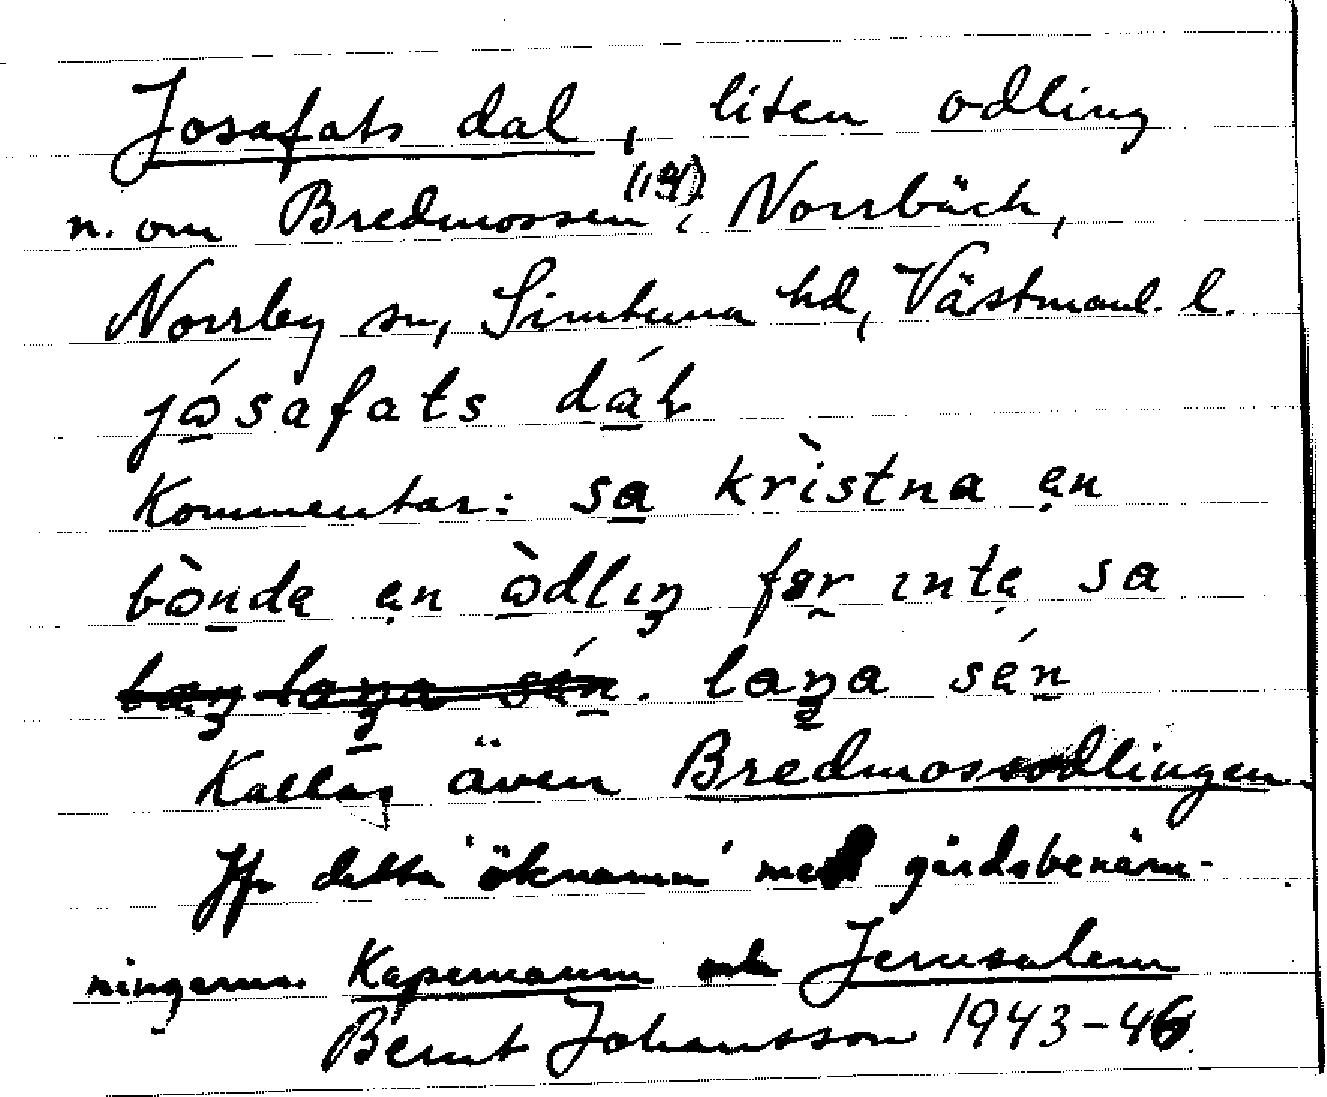 Josafats dal, liten odling
n. om Bredmossen (19), Norrbäck,
Norrby sn, Simtuna hd, Västmanl. l.
jósafats dáɫ
Kommentar: sa krìstna ẹn
bònde ẹn òdlıŋ fɵr ıntẹ sa
laŋ laŋa sén. laŋa sén
Kallas även Bredmossodlingen.
Jfr detta 'öknamn' med gårdsbenäm-
ningarna Kapernaum och Jerusalem
Bernt Johansson 1943-46.